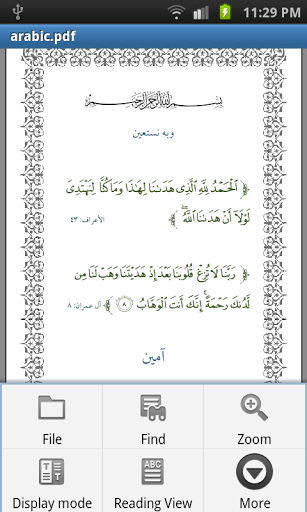 11:29 PM
arabic.pdf
بسم الله الرحمن الرحيم
وبه نستعين
﴿ ٱلْحَمْدُ لِلَّهِ ٱلَّذِى هَدَىٰنَا لِهَٰذَا وَمَا كُنَّا لِنَهْتَدِىَ
لَوْلَآ أَنْ هَدَىٰنَا ٱللَّهُ ﴾ الأعراف: ٤٣
﴿ رَبَّنَا لَا تُزِغْ قُلُوبَنَا بَعْدَ إِذْ هَدَيْتَنَا وَهَبْ لَنَا مِن
لَّدُنكَ رَحْمَةً إِنَّكَ أَنتَ ٱلْوَهَّابُ ﴿٨﴾ ﴾ آل عمران: ٨
آمين
File Find Zoom
Display mode Reading View More